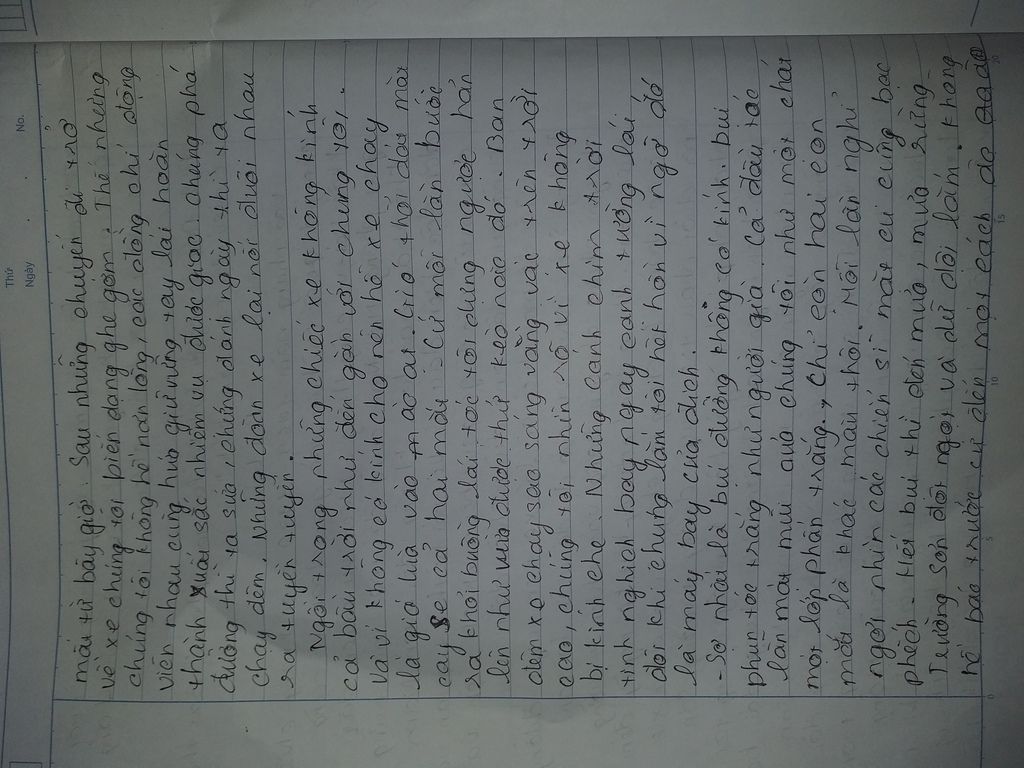 Thứ
Ngày
No.
mãi từ bây giờ. Sau những chuyến đi trở
về xe chúng tôi biến dạng ghê gớm. Thế nhưng
chúng tôi không hề nản lòng, các đồng chí động
viên nhau cùng hứa giữ vững tay lái hoàn
thành xuất sắc nhiệm vụ được giao chúng phá
đường thì ta sửa, chúng đánh ngày thì ta
chạy đêm, Những đoàn xe lại nối đuôi nhau
ra tuyền tuyến.
Ngồi trong những chiếc xe không kính
cả bầu trời như đến gần với chúng tôi.
Và vì không có kính cho nên hễ xe chạy
là gió lùa vào mao ai. Gió thổi đáy mặt
cay se cả hai mắt. Cứ mỗi lần bước
ra khỏi buồng lái tóc tôi dựng ngược hẳn
lên như vừa được thứ keo nào đó. Ban
đêm xe chạy sao sáng vằng vặc trên trời
cao, chúng tôi nhìn rõ vì xe không
bị kính che Những cánh chim trời
tinh nghịch bay ngay cạnh tường lái
đôi khi chung làm tôi hết hồn vì ngỡ đó
là máy bay của địch.
- Sợ nhất là bụi đường không có kính bụi
phun tóc trắng như người già. Cả đầu tóc
lẫn mặt mũi của chúng tôi như một chát
một lớp phấn trắng, chỉ còn hai con
mắt là khác màu thôi. Mỗi lần nghỉ
ngơi nhìn các chiến sĩ mặt cứ cũng bạc
phếch. Hết bụi thì đến mưa, mưa rừng
Trường Sơn đột ngột và dữ dội lắm không
hề báo trước cứ đến một cách đồ
0
5
10
15
20